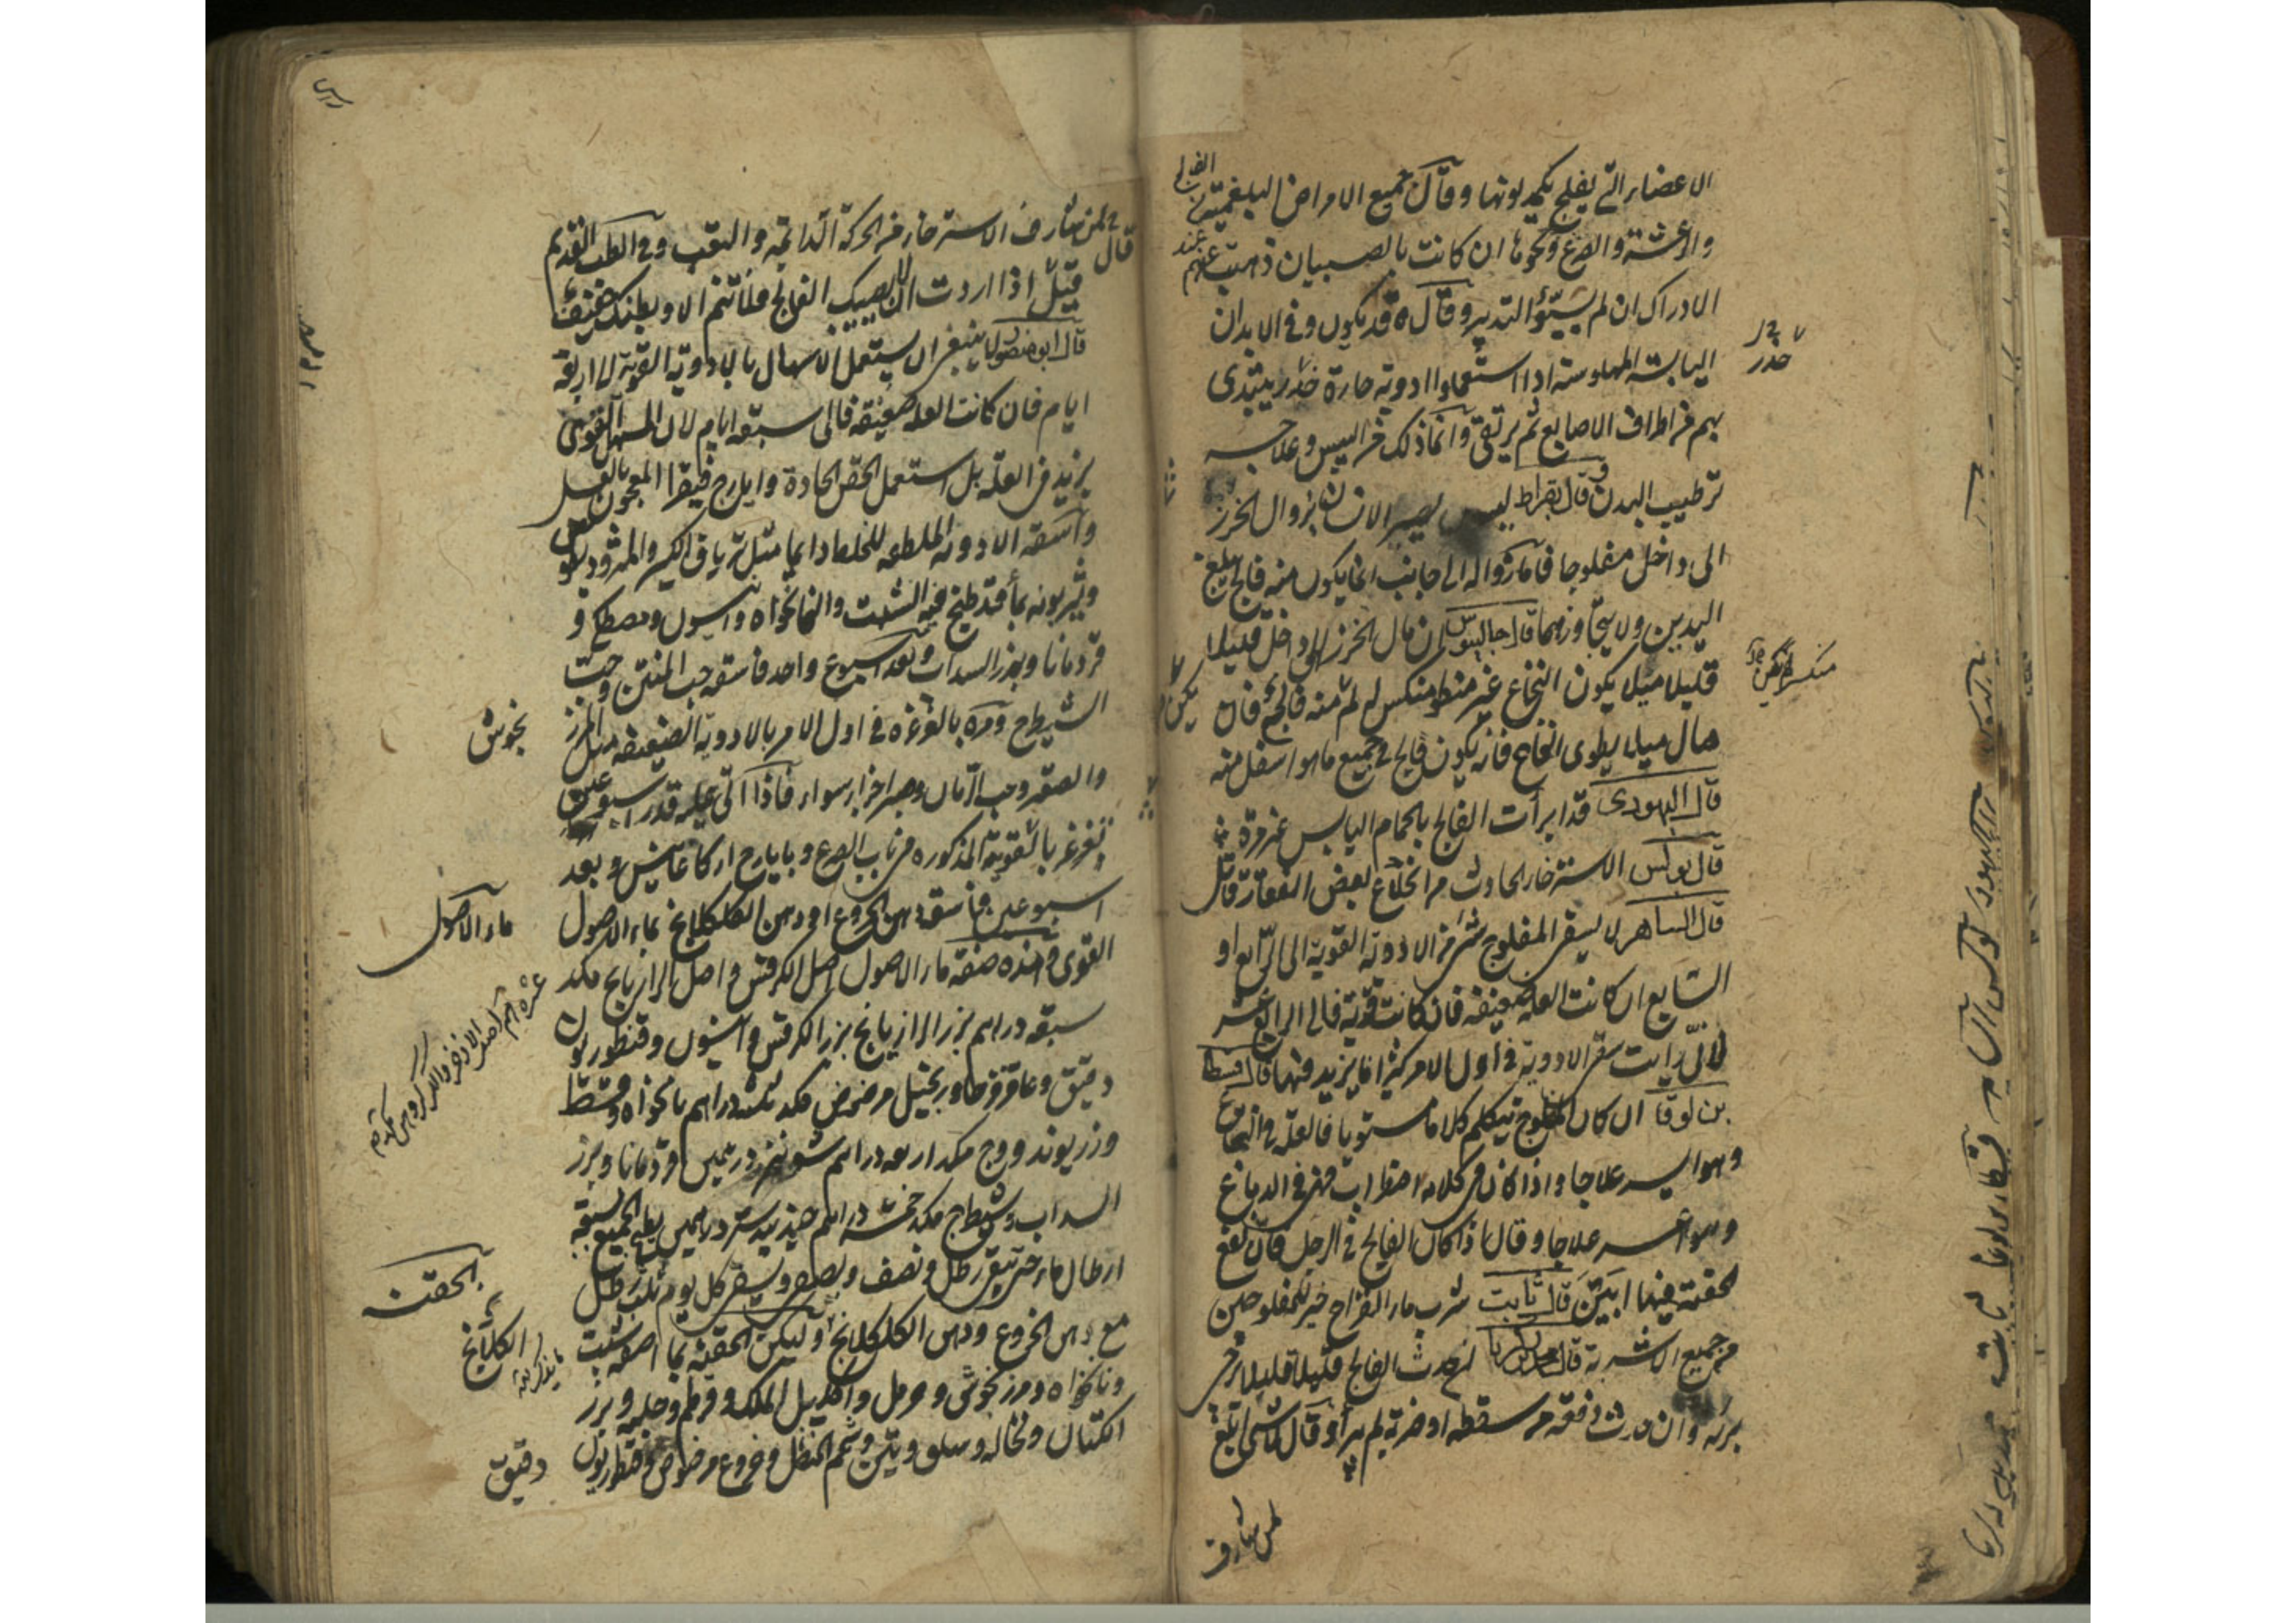 الاعضاء التي يفلج يكمد لونها وقال جميع الامراض البلغمية
الفالج
والرعشة والصرع ونحوها ان كانت بالصبيان ذهبت عنهم عند
الادراك ان لم يسيؤ التدبير وقال قد يكون في الابدان
اليابسة المهلوسة اذا استعملوا ادوية حارة خدر يبتدى
خدر
بهم من اطراف الاصابع ثم يرتقى وانما ذلك من اليبس وعلاجه
ترطيب البدن وقال بقراط ليس يصير الانسان بزوال الخرز
الى داخل مفلوجا فاما زواله الى جانب انما يكون منه فالج يبلغ
اليدين ولا يتجاوزهما قال جالينوس ان مال الخرز الى داخل قليلا
قليلا ميلا يكون النخاع غير منطو منكسر لم يكن منه فالج فان
مال ميلا يطوى النخاع فانه يكون فالج في جميع ما هو اسفل منه
قال اليهودى قد ابرأت الفالج بالحمام اليابس غير مرة
قال بولس الاسترخاء الحادث من انخلاع بعض الفقار قاتل
قال الساهر لا يسقى المفلوج شئ من الادوية القوية الى الرابع او
السابع ان كانت العلة ضعيفة فان كانت قوية فالى الرابع عشر
لانى رايت سقى الادوية في اول الامر كثيرا ما يزيد فيها قال قسطا
بن لوقا ان كان المفلوج يتكلم كلاما مستويا فالعلة في النخاع
وهو ايسر علاجا واذا كان في كلامه اضطراب فهى في الدماغ
وهو اعسر علاجا وقال اذا كان الفالج في الرجل فان نفع
الحقنة فيها ابين قال ثابت شرب ماء القراح خير للمفلوجين
من جميع الاشربة قال محمد بن زكريا ان حدث الفالج قليلا قليلا رجى
برئه وان حدث دفعة من سقطة او ضربة لم يبرأ وقال
لمن شارف
قال
لمن شارف الاسترخاء من الحركة الدائمة والتعب وفي الطب القديم
قيل اذا اردت ان لا يصيبك الفالج فلا تنم الا وبطنك خفيف
قال ابو منصور لا ينبغى ان يستعمل الاسهال بالادوية القوية الى اربعة
ايام فان كانت العلة ضعيفة فالى سبعة ايام لان المسهل القوى
يزيد في العلة بل استعمل الحقن الحادة وايارج فيقرا المعجون بالعسل
واسقه الادوية الملطفة للخلط دايما مثل ترياق الكبير والمثروديطوس
ويشربونه بماء قد طبخ فيه الشبت والنانخواه وانيسون ومصطكى و
قردمانا وبزر السداب وبعد اسبوع واحد فاسقه حب المنتن وحب
الشيطرج ومره بالغرغرة في اول الامر بالادوية الضعيفة مثل المرزنجوش
والصعتر وحب الرمان وصبر اجزاء سواء فاذا اتى عليه قدر اسبوعين
تغرغر بالقوية المذكورة في باب الصرع وبايارج اركاغانيس وبعد
اسبوعين فاسقه دهن الخروع او دهن الكلكلانج بماء الاصول
ماء الاصول
القوى وهذه صفة ماء الاصول اصل الكرفس واصل الرازيانج مكد
سبعة دراهم بزر الرازيانج بزر الكرفس وانيسون وقنطوريون
دقيق وعاقرقرحا وزنجبيل مرضوض مكد ثلثة دراهم نانخواه وقسط
وزريوند ووج مكد اربعة دراهم شونيز درهمين قردمانا وبزر
السداب وشيطرج مكد خمسة دراهم جندبيدستر درهمين يطبخ الجميع بسبعة
ارطال ماء حتى يبقى رطل ونصف ويصفى ويسقى كل يوم ثلث رطل
مع دهن الخروع ودهن الكلكلانج وليكن الحقنة بما اصفه شبت
الحقنة
ونانخواه ومرزنجوش وحرمل واكليل الملك وقرطم وحلبة وبزر
الكتان ونخالة وسلق وتين وشحم الحنظل وخروع مرضوض وقنطوريون
دقيق